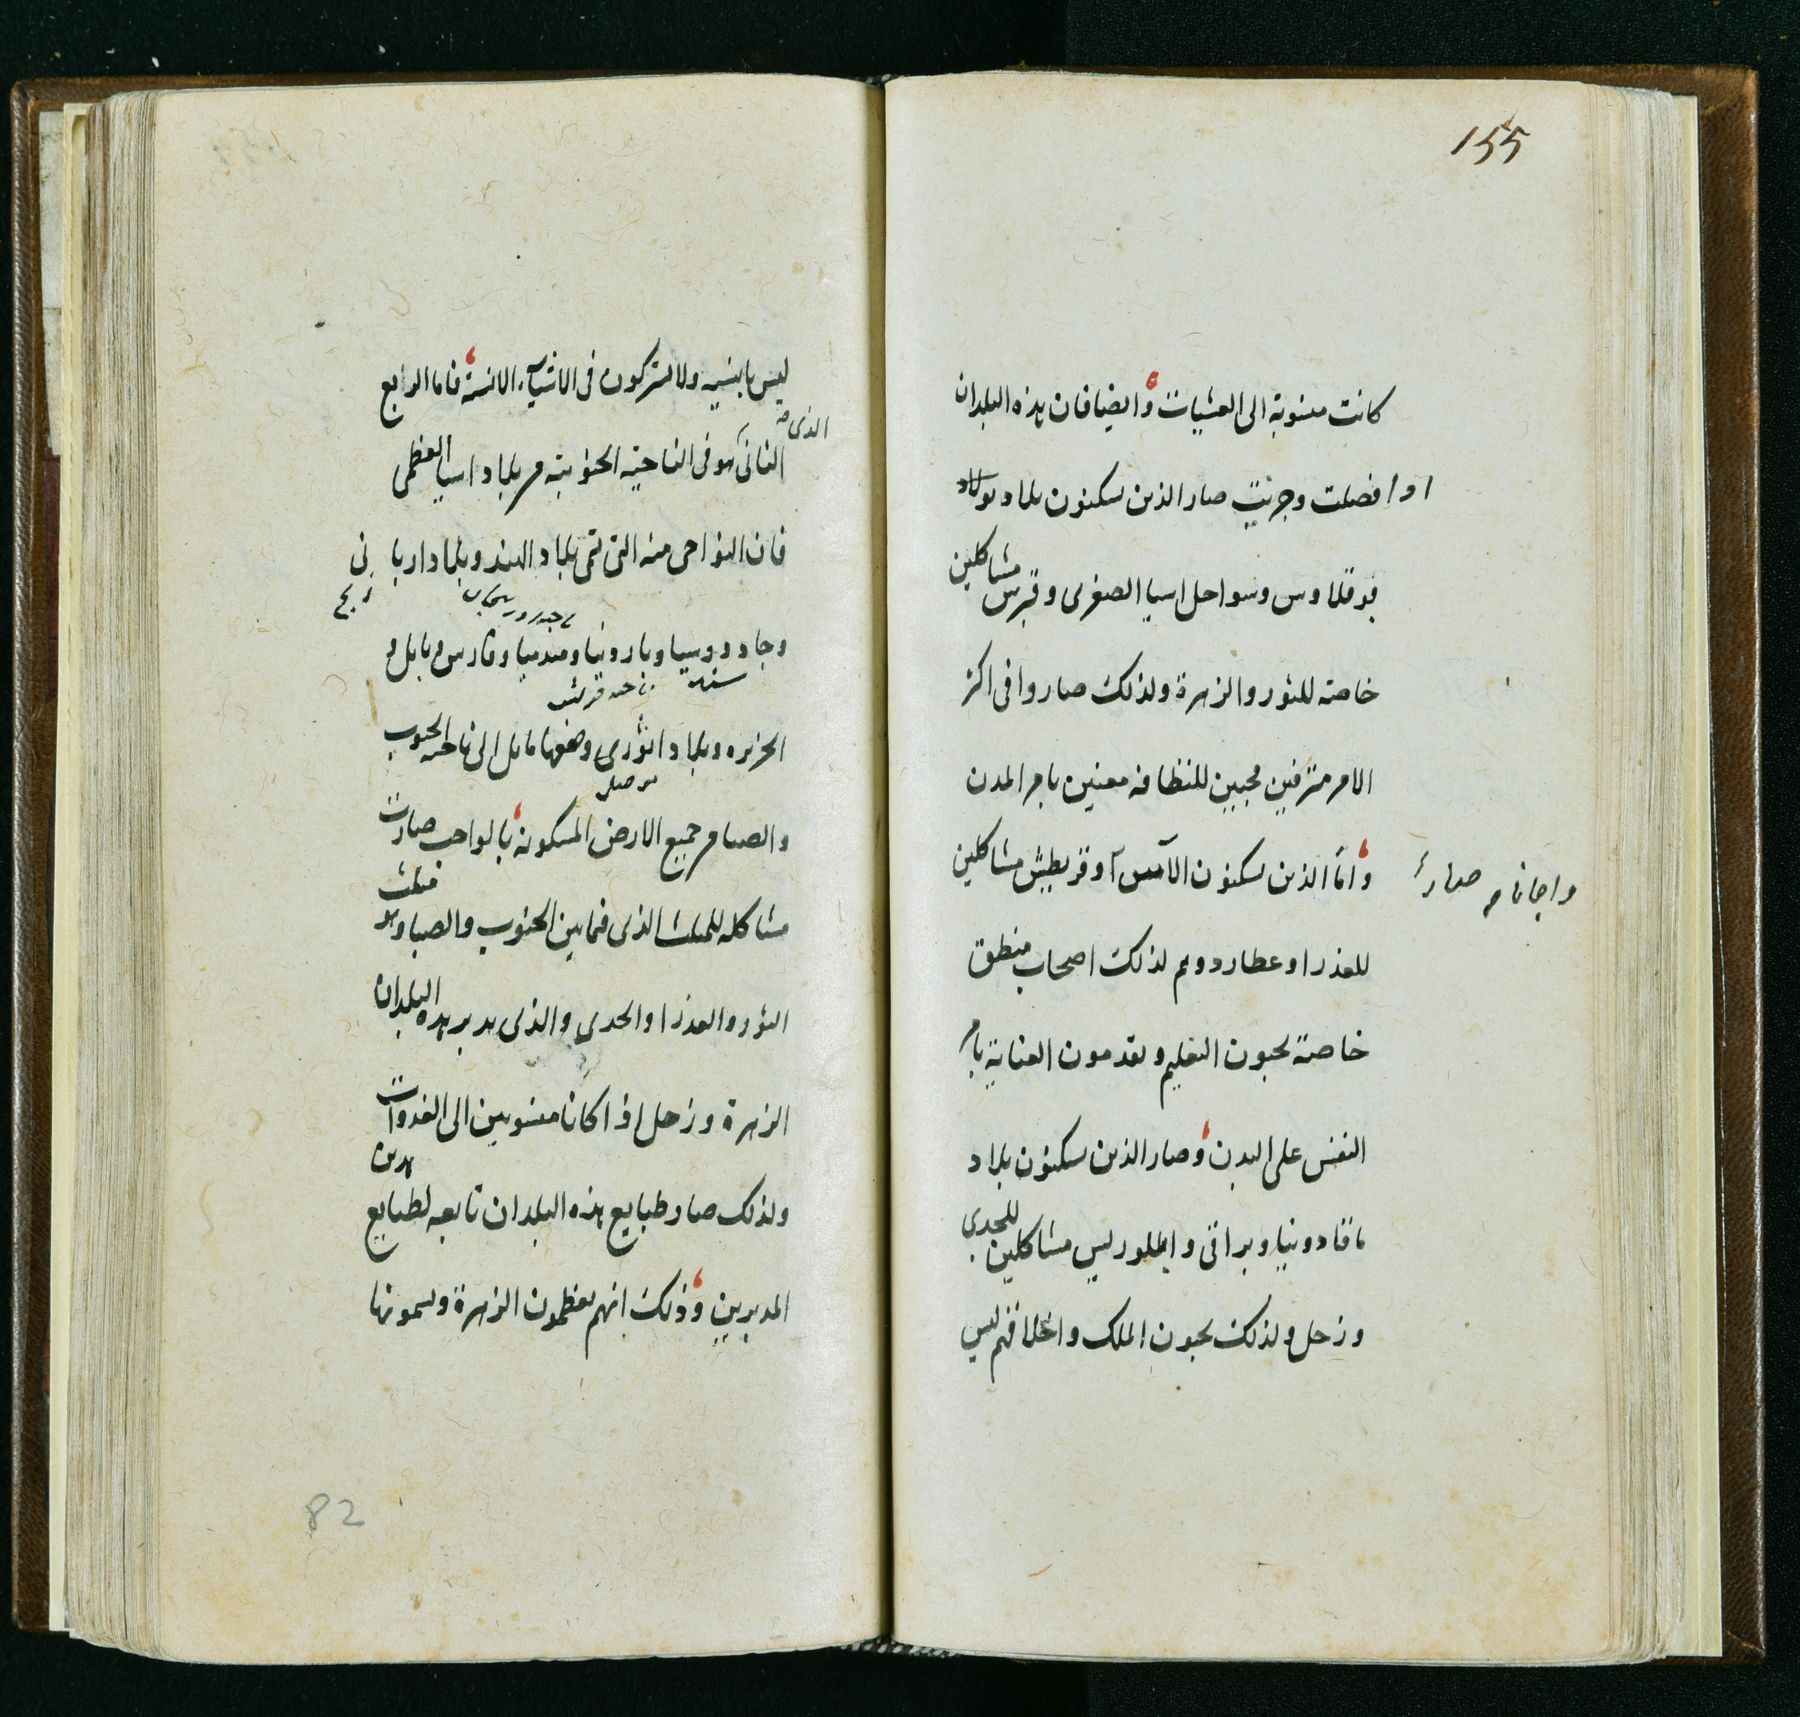 155
كانت منسوبة الى العشيات وايضا فان هذه البلدان
اذا فصلت وجزيت صار الذين يسكنون بلاد
قوقلادس وسواحل اسيا الصغرى وقبرس مشاكلين
خاصة للثور والزهرة ولذلك صاروا فى اكثر
الامر مترفين محبين للنظافة معنيين بامر المدن
واما الذين يسكنون وقريطيش مشاكلين
للعذرا وعطارد وهم لذلك اصحاب منطق
خاصة يحبون التعليم ويقدمون العناية بامر
النفس على البدن وصار الذين يسكنون بلاد
ماقادونيا وبراقى وايللوريس مشاكلين للجدى
وزحل ولذلك يحبون الملك واخلاقهم ليس
ليس بانيسه ولا يشتركون فى الاشياء الانسة فاما الرابع
الذى
الثانى هو فى الناحية الجنوبية من بلاد اسيا العظمى
فان النواحى منه التى تسمى بلاد الهند وبلاد اريا نى
وجادروسيا وبارونيا وميديا وفارس وبابل و
الجزيره وبلاد اثورى وضعها مايل الى ناحية الجنوب
موصل
والصبا من جميع الارض المسكونة بالواجب صارت
مشاكله للمثلث الذى فيما بين الجنوب والصبا وهو مثلث
الثور والعذرا والجدى والذى يدبر هذه البلدان
الزهرة وزحل اذا كانا منسوبين الى الغدوات
ولذلك صار طبايع هذه البلدان تابعه لطبايع هذين
المدبرين وذلك انهم يعظمون الزهرة ويسمونها
82